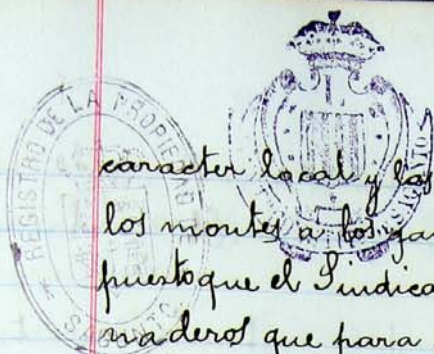 REGISTRO DE LA PROPIEDAD DE
SAGUNTO
caracter local y las
los montes a los gan
puesto que el Sindica
naderos que para